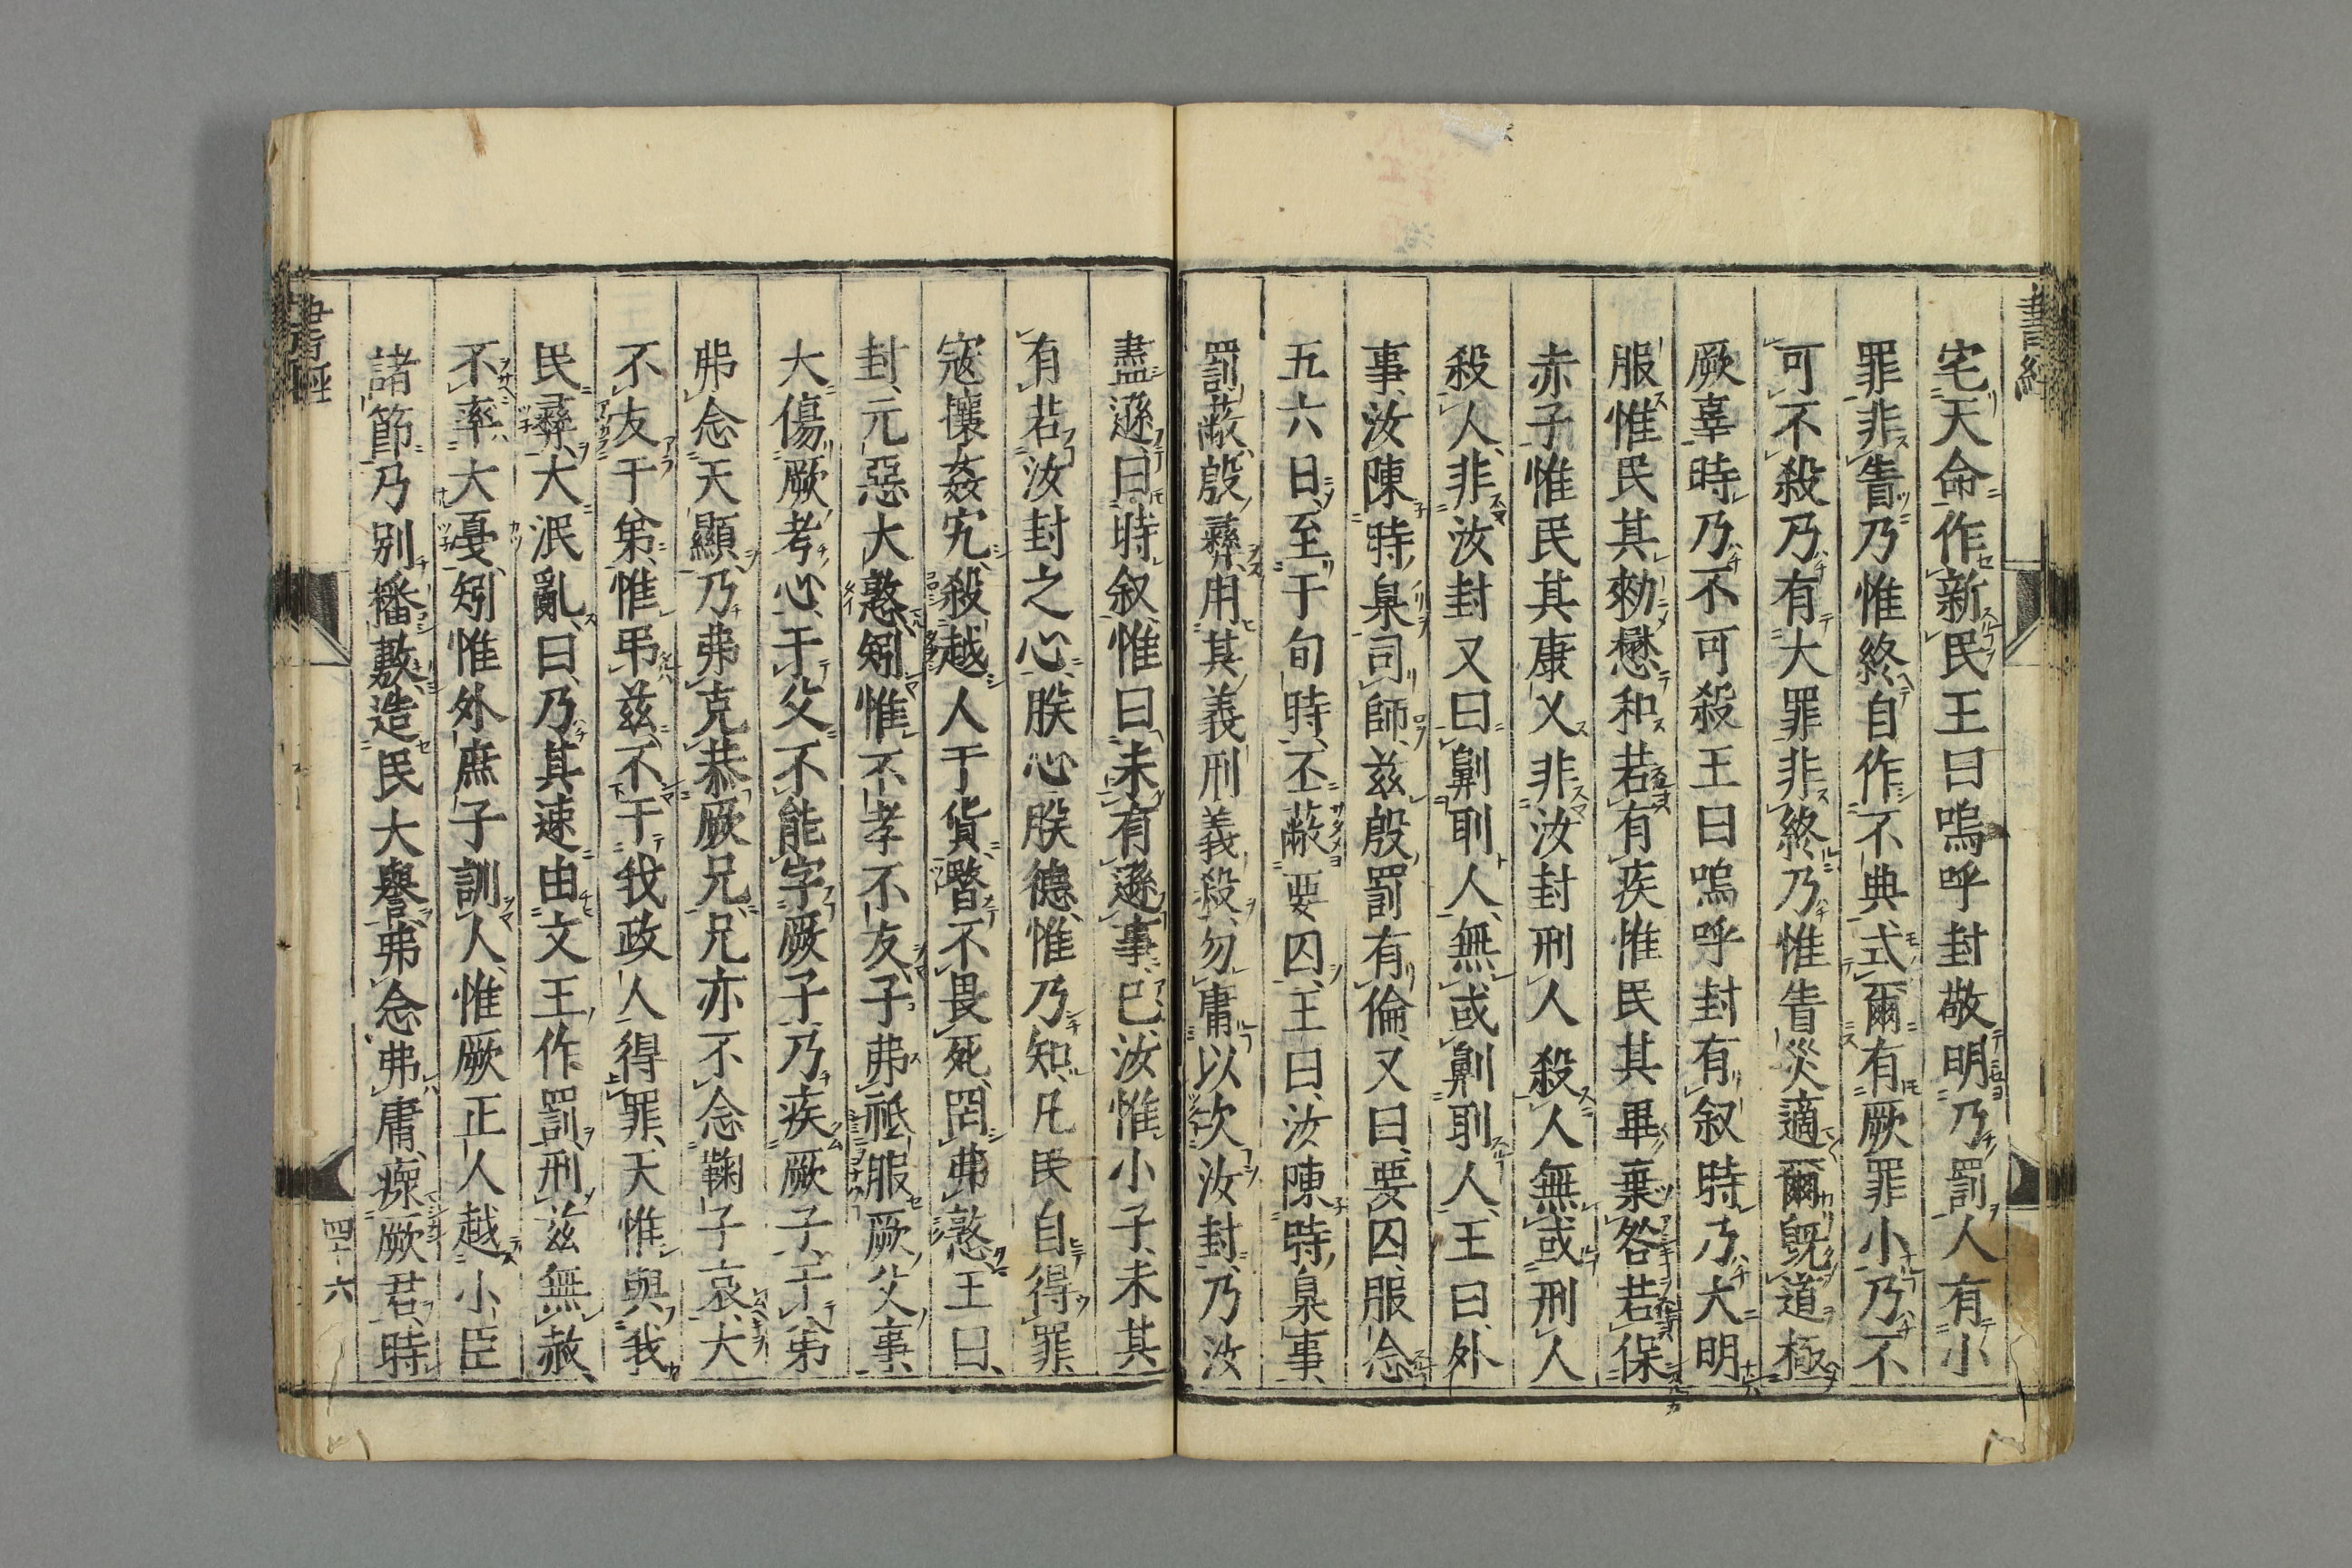 書經
宅天命作新民王曰嗚呼封敬明乃罰人有小
罪非眚乃惟終自作不典式爾有厥罪小乃不
可不殺乃有大罪非終乃惟眚災適爾旣道極
厥辜時乃不可殺王曰嗚呼封有叙時乃大明
服惟民其勑懋和若有疾惟民其畢棄咎若保
赤子惟民其康乂非汝封刑人殺人無或刑人
殺人非汝封又曰劓刵人無或劓刵人王曰外
事汝陳時臬司師兹殷罰有倫又曰要囚服念
五六日至于旬時丕蔽要囚王曰汝陳時臬事
罰蔽殷彞用其義刑義殺勿庸以次汝封乃汝
盡遜曰時叙惟曰未有遜事已汝惟小子未其
有若汝封之心朕心朕德惟乃知凡民自得罪
寇攘姦宄殺越人于貨暋不畏死罔弗憝王曰
封元惡大憝矧惟不孝不友子弗祗服厥父事
大傷厥考心于父不能字厥子乃疾厥子于弟
弗念天顯乃弗克恭厥兄兄亦不念鞠子哀大
不友于弟惟弔兹不于我政人得罪天惟與我
民彞大泯亂曰乃其速由文王作罰刑兹無赦
不率大戞矧惟外庶子訓人惟厥正人越小臣
諸節乃别播敷造民大譽弗念弗庸瘝厥君時
書經
四十六